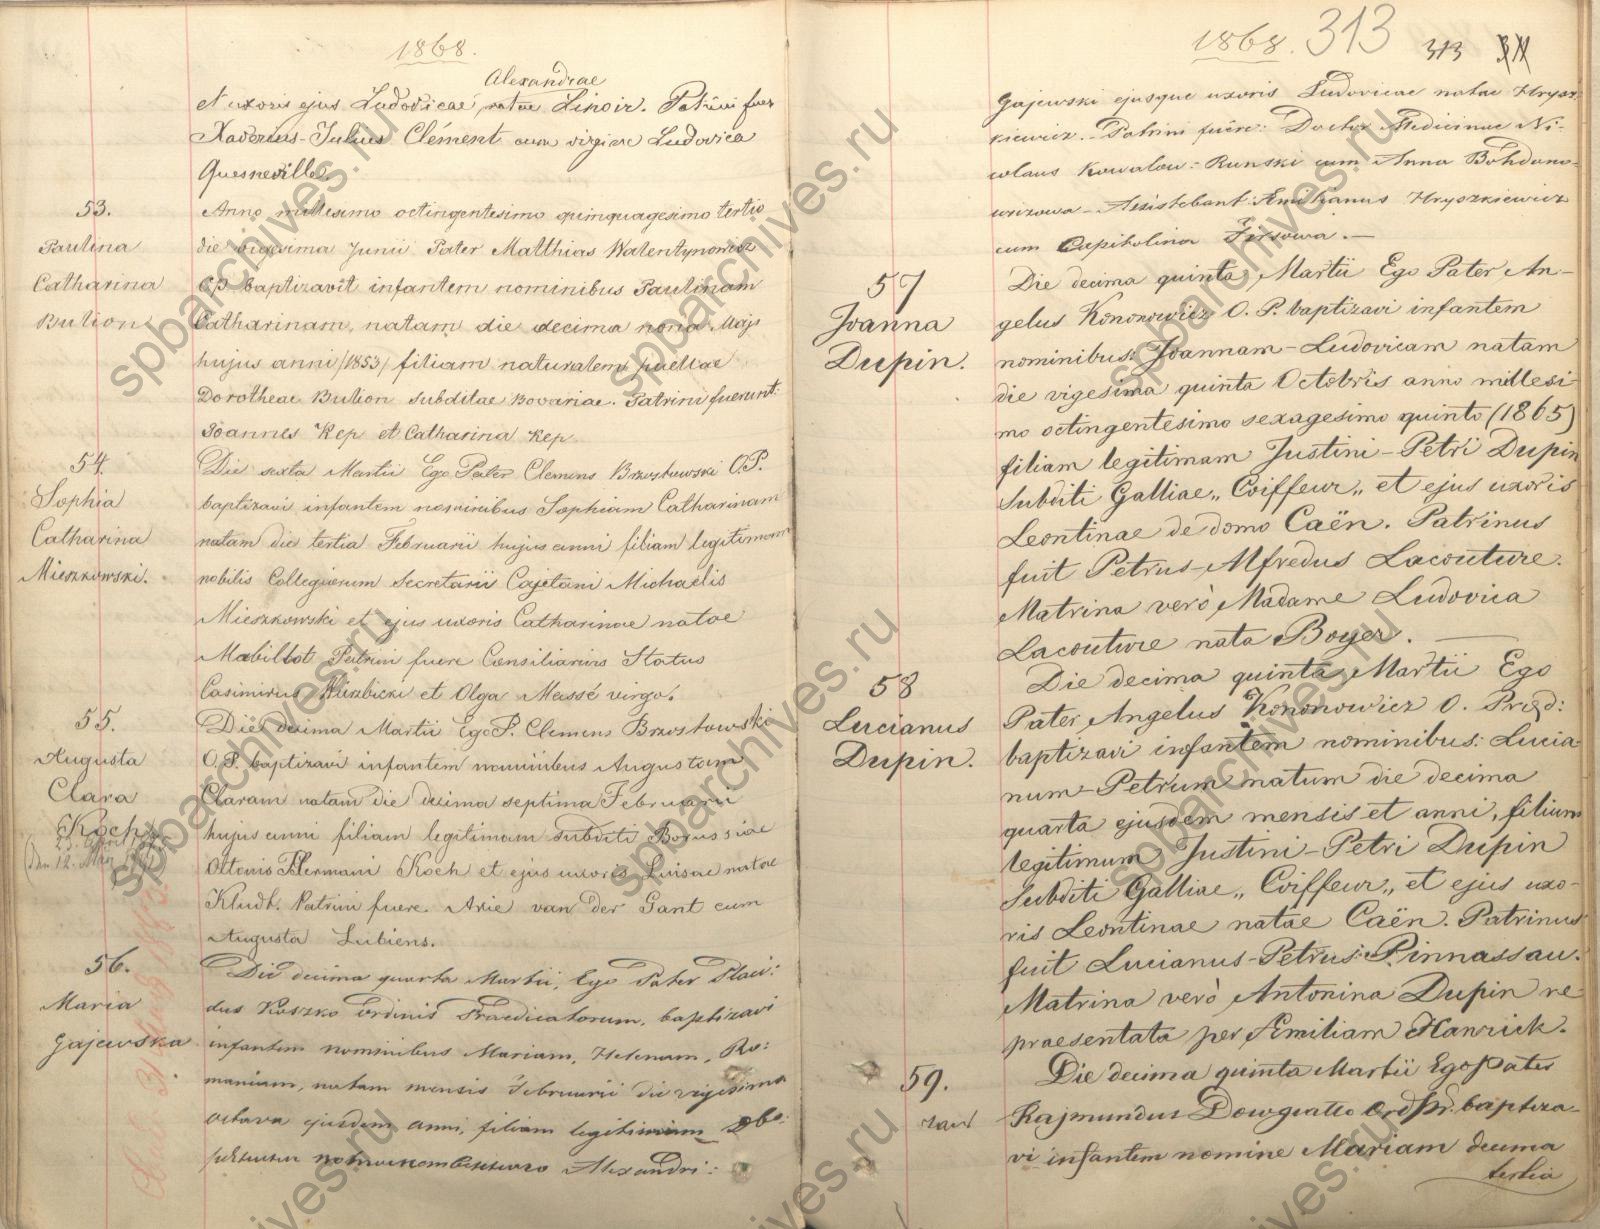 1868.
Alexandrae
et uxoris ejus Ludovicae, natae Linoir. Patrini fuer
Xaverius-Julius Clément cum virgine Ludovica
Quesneville.
53.
Paulina
Catharina
Bution
Anno millesimo octingentesimo quinquagesimo tertio
die vigesima Junii Pater Matthias Walentynowicz
O.P. baptizavit infantem nominibus Paulinam
Catharinam, natam die decima nona Maji
hujus anni /1853/ filiam naturalem puellae
Dorotheae Bution subditae Bovariae. Patrini fuerunt:
Joannes Kep et Catharina Kep
54.
Sophia
Catharina
Mieszkowski.
Die sexta Martii Ego Pater Clemens Brzostowski O.P.
baptizavi infantem nominibus Sophiam Catharinam
natam die tertia Februarii hujus anni filiam legitimam
nobilis Collegiorum Secretarii Cajetani Michaelis
Mieszkowski et ejus uxoris Catharinae natae
Mabillot Patrini fuere Consiliarius Status
Casimirus Wierzbicki et Olga Massé virgo.
55.
Augusta
Clara
Koch
Die decima Martii Ego P. Clemens Brzostowski
O.P. baptizavi infantem nominibus Augustam
Claram natam die decima septima Februarii
hujus anni filiam legitimam subditi Borussiae
Ottonis Hermani Koch et ejus uxoris Luisae natae
Kludt. Patrini fuere. Arie van der Gant cum
Augusta Lubiens.
56.
Maria
Gajewska
Die decima quarta Martii, Ego Pater Placi:
dus Koszko Ordinis Praedicatorum, baptizavi
infantem nominibus Mariam, Helenam, Ro:
maniam, natam mensis Februarii die vigesima
octava ejusdem anni, filiam legitimam
Alexandri:
1868. 313 313
Gajewski ejusque uxoris Ludovicae natae Hrysz:
kiewicz. Patrini fuêre: Doctor Medicinae Ni-
colaus Kowalew-Runski cum Anna Bohdano-
wiczowa - Assistebant Emilianus Hryszkiewicz
cum Capitolina Firsowa. —
57
Joanna
Dupin.
Die decima quinta Martii Ego Pater An-
gelus Kononowicz O. P. baptizavi infantem
nominibus: Joannam-Ludovicam natam
die vigesima quinta Octobris anno millesi-
mo octingentesimo sexagesimo quinto (1865)
filiam legitimam Justini-Petri Dupin
Subditi Galliae „Coiffeur„ et ejus uxoris
Leontinae de domo Caën. Patrinus
fuit Petrus-Alfredus Lacouture.
Matrina verò Madame Ludovica
Lacouture nata Boyer. —
58
Lucianus
Dupin.
Die decima quinta Martii Ego
Pater Angelus Kononowicz O. Præd:
baptizavi infantem nominibus: Lucia-
num-Petrum natum die decima
quarta ejusdem mensis et anni, filium
legitimum Justini-Petri Dupin
Subditi Galliae „Coiffeur„ et ejus uxo-
ris Leontinae natae Caën. Patrinus
fuit Lucianus-Petrus: Pinnassau.
Matrina verò Antonina Dupin re
praesentata per Æmiliam Hanrick.
59.
Die decima quinta Martii Ego Pater
Rajmundus Dowgiatto Ord Pr. baptiza-
vi infantem nomine Mariam decima
tertia
spbarchives.ru